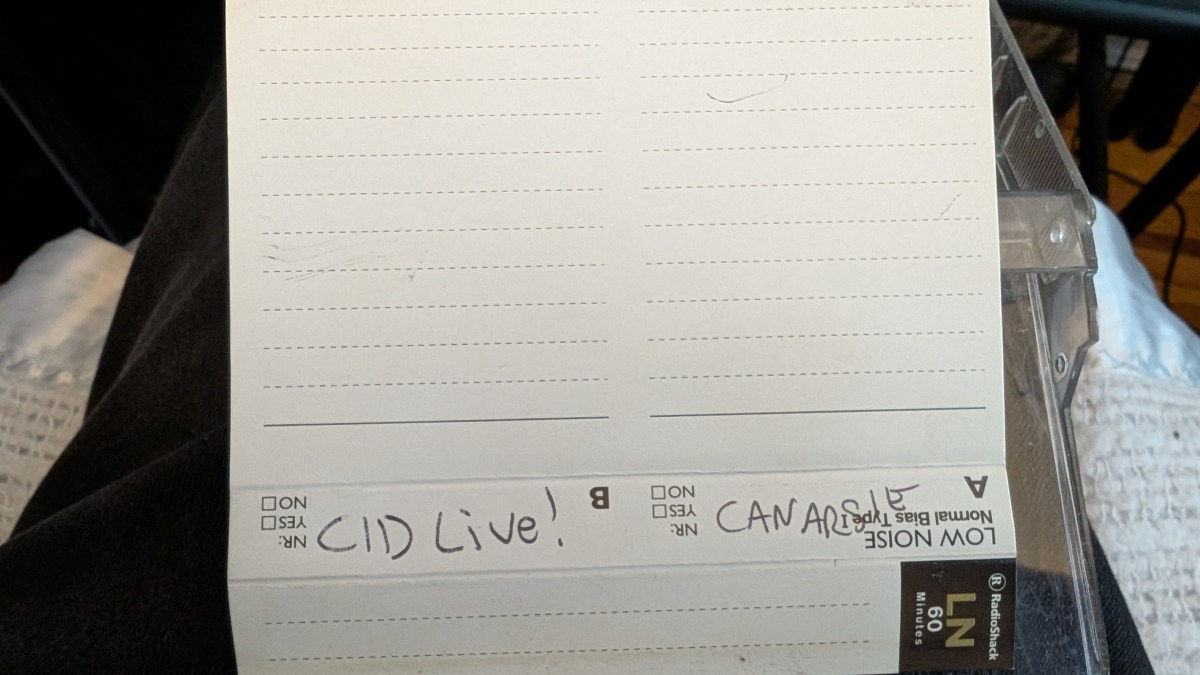 CID Live!
CANARSIE
A
LOW NOISE
Normal Bias Type I
NR:
YES
NO
B
NR:
YES
NO
® RadioShack
LN
60
Minutes